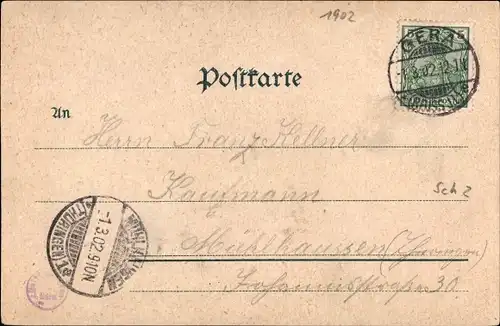 1902
GERA
-1.3.02.12-1N
(REUSS)
Postkarte
An
Herrn Franz Kellner
Kaufmann
Sch 2
Mühlhausen (Thüringen)
Johannisstraße 30
MÜHLHAUSEN
-1.3.02.9-10N
*(THÜRINGEN)*